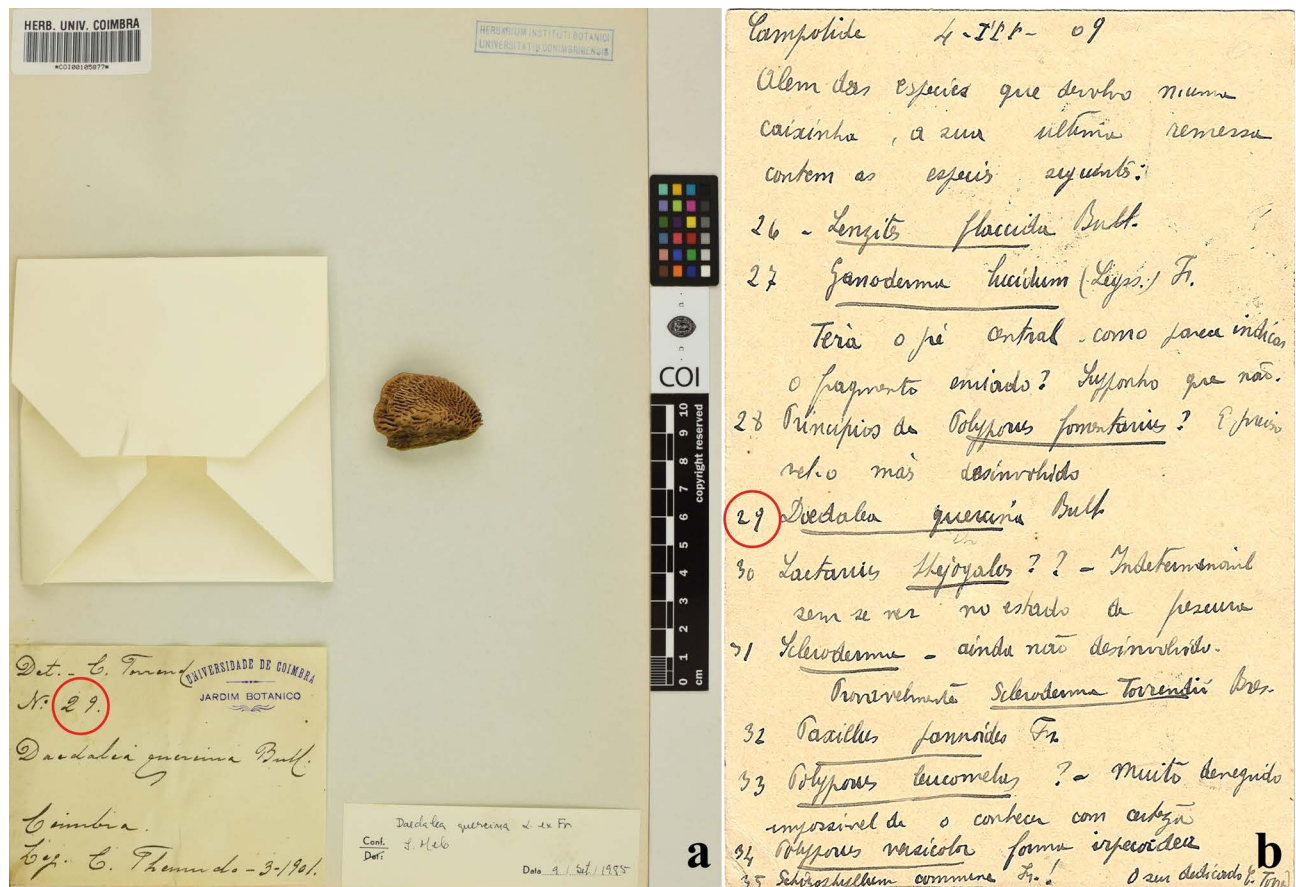 HERB. UNIV. COIMBRA
*COI00105877*
HERBARIUM INSTITUTI BOTANICI
UNIVERSITATIS CONIMBRIGENSIS
COI
10
9
8
7
6
5
4
3
2
1
0
cm
copyright reserved
Det. - C. Torrend
UNIVERSIDADE DE COIMBRA
JARDIM BOTANICO
Nº 29.
Daedalea quercina Bull.
Coimbra.
Leg. C. Themudo - 3-1901.
Daedalea quercina L. ex Fr
Conf.
Det:
Data 9 / Set / 1985
a
Campolide 4-III-09
Alem das especies que devolvo numa
caixinha, a sua ultima remessa
contem as especies seguintes:
26 - Lenzites flaccida Bull.
27 Ganoderma lucidum (Leyss.) Fr.
Terà o pé central como parece indicar
o fragmento enviado? Supponho que não.
28 Principios de Polyporus fomentarius? É preciso
vel-o mais desinvolvido
29 Daedalea quercina Bull
30 Lactarius ? ? - Indeterminavel
sem se ver no estado de frescura
31 Scleroderma - ainda não desinvolvido.
Provavelmente Scleroderma Torrendii Bres.
32 Paxillus pannoides Fr.
33 Polyporus leucomelas ? - Muito denegrido
impossivel de o conhecer com certeza
34 Polyporus versicolor forma irpicoidea
35 Schizophyllum commune Fr.! O seu dedicado C. Torrend
b